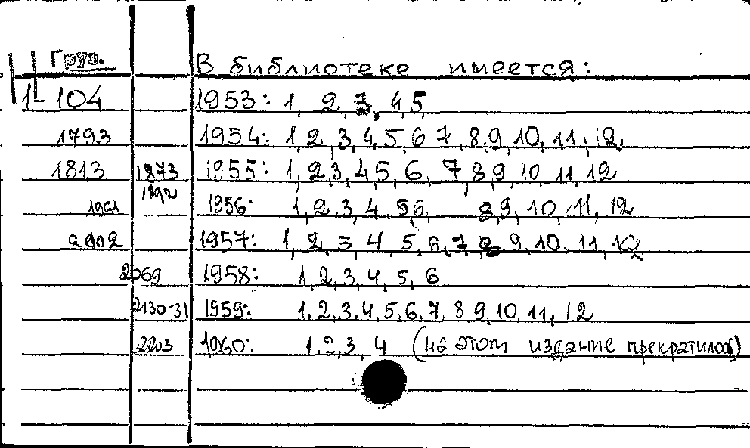 Груп. В библиотеке имеется:
1-104 1953: 1, 2, 3, 4, 5
1793 1954: 1, 2, 3, 4, 5, 6 7, 8, 9, 10, 11, 12
1813 1873 1955: 1, 2, 3, 4, 5, 6, 7, 8, 9, 10 11, 12
1892
1961 1956: 1, 2, 3, 4 5, 6 8, 9, 10, 11, 12
2002 1957: 1, 2, 3, 4 5, 6, 7, 8 9, 10, 11, 12
2069 1958: 1, 2, 3, 4, 5, 6
2130-31 1959: 1, 2, 3, 4, 5, 6, 7, 8 9, 10, 11, 12
2203 1960: 1, 2, 3, 4 (на этом издание прекратилось)